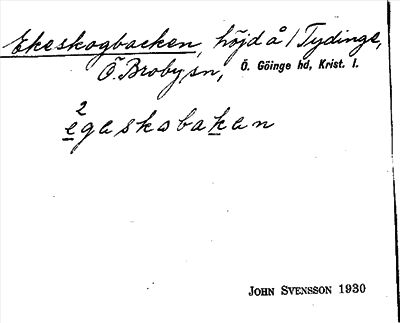 Ekeskogbacken, höjd å 1 Tydinge,
Ö. Broby sn, Ö. Göinge hd, Krist. l.
2
egaskobakan
JOHN SVENSSON 1930